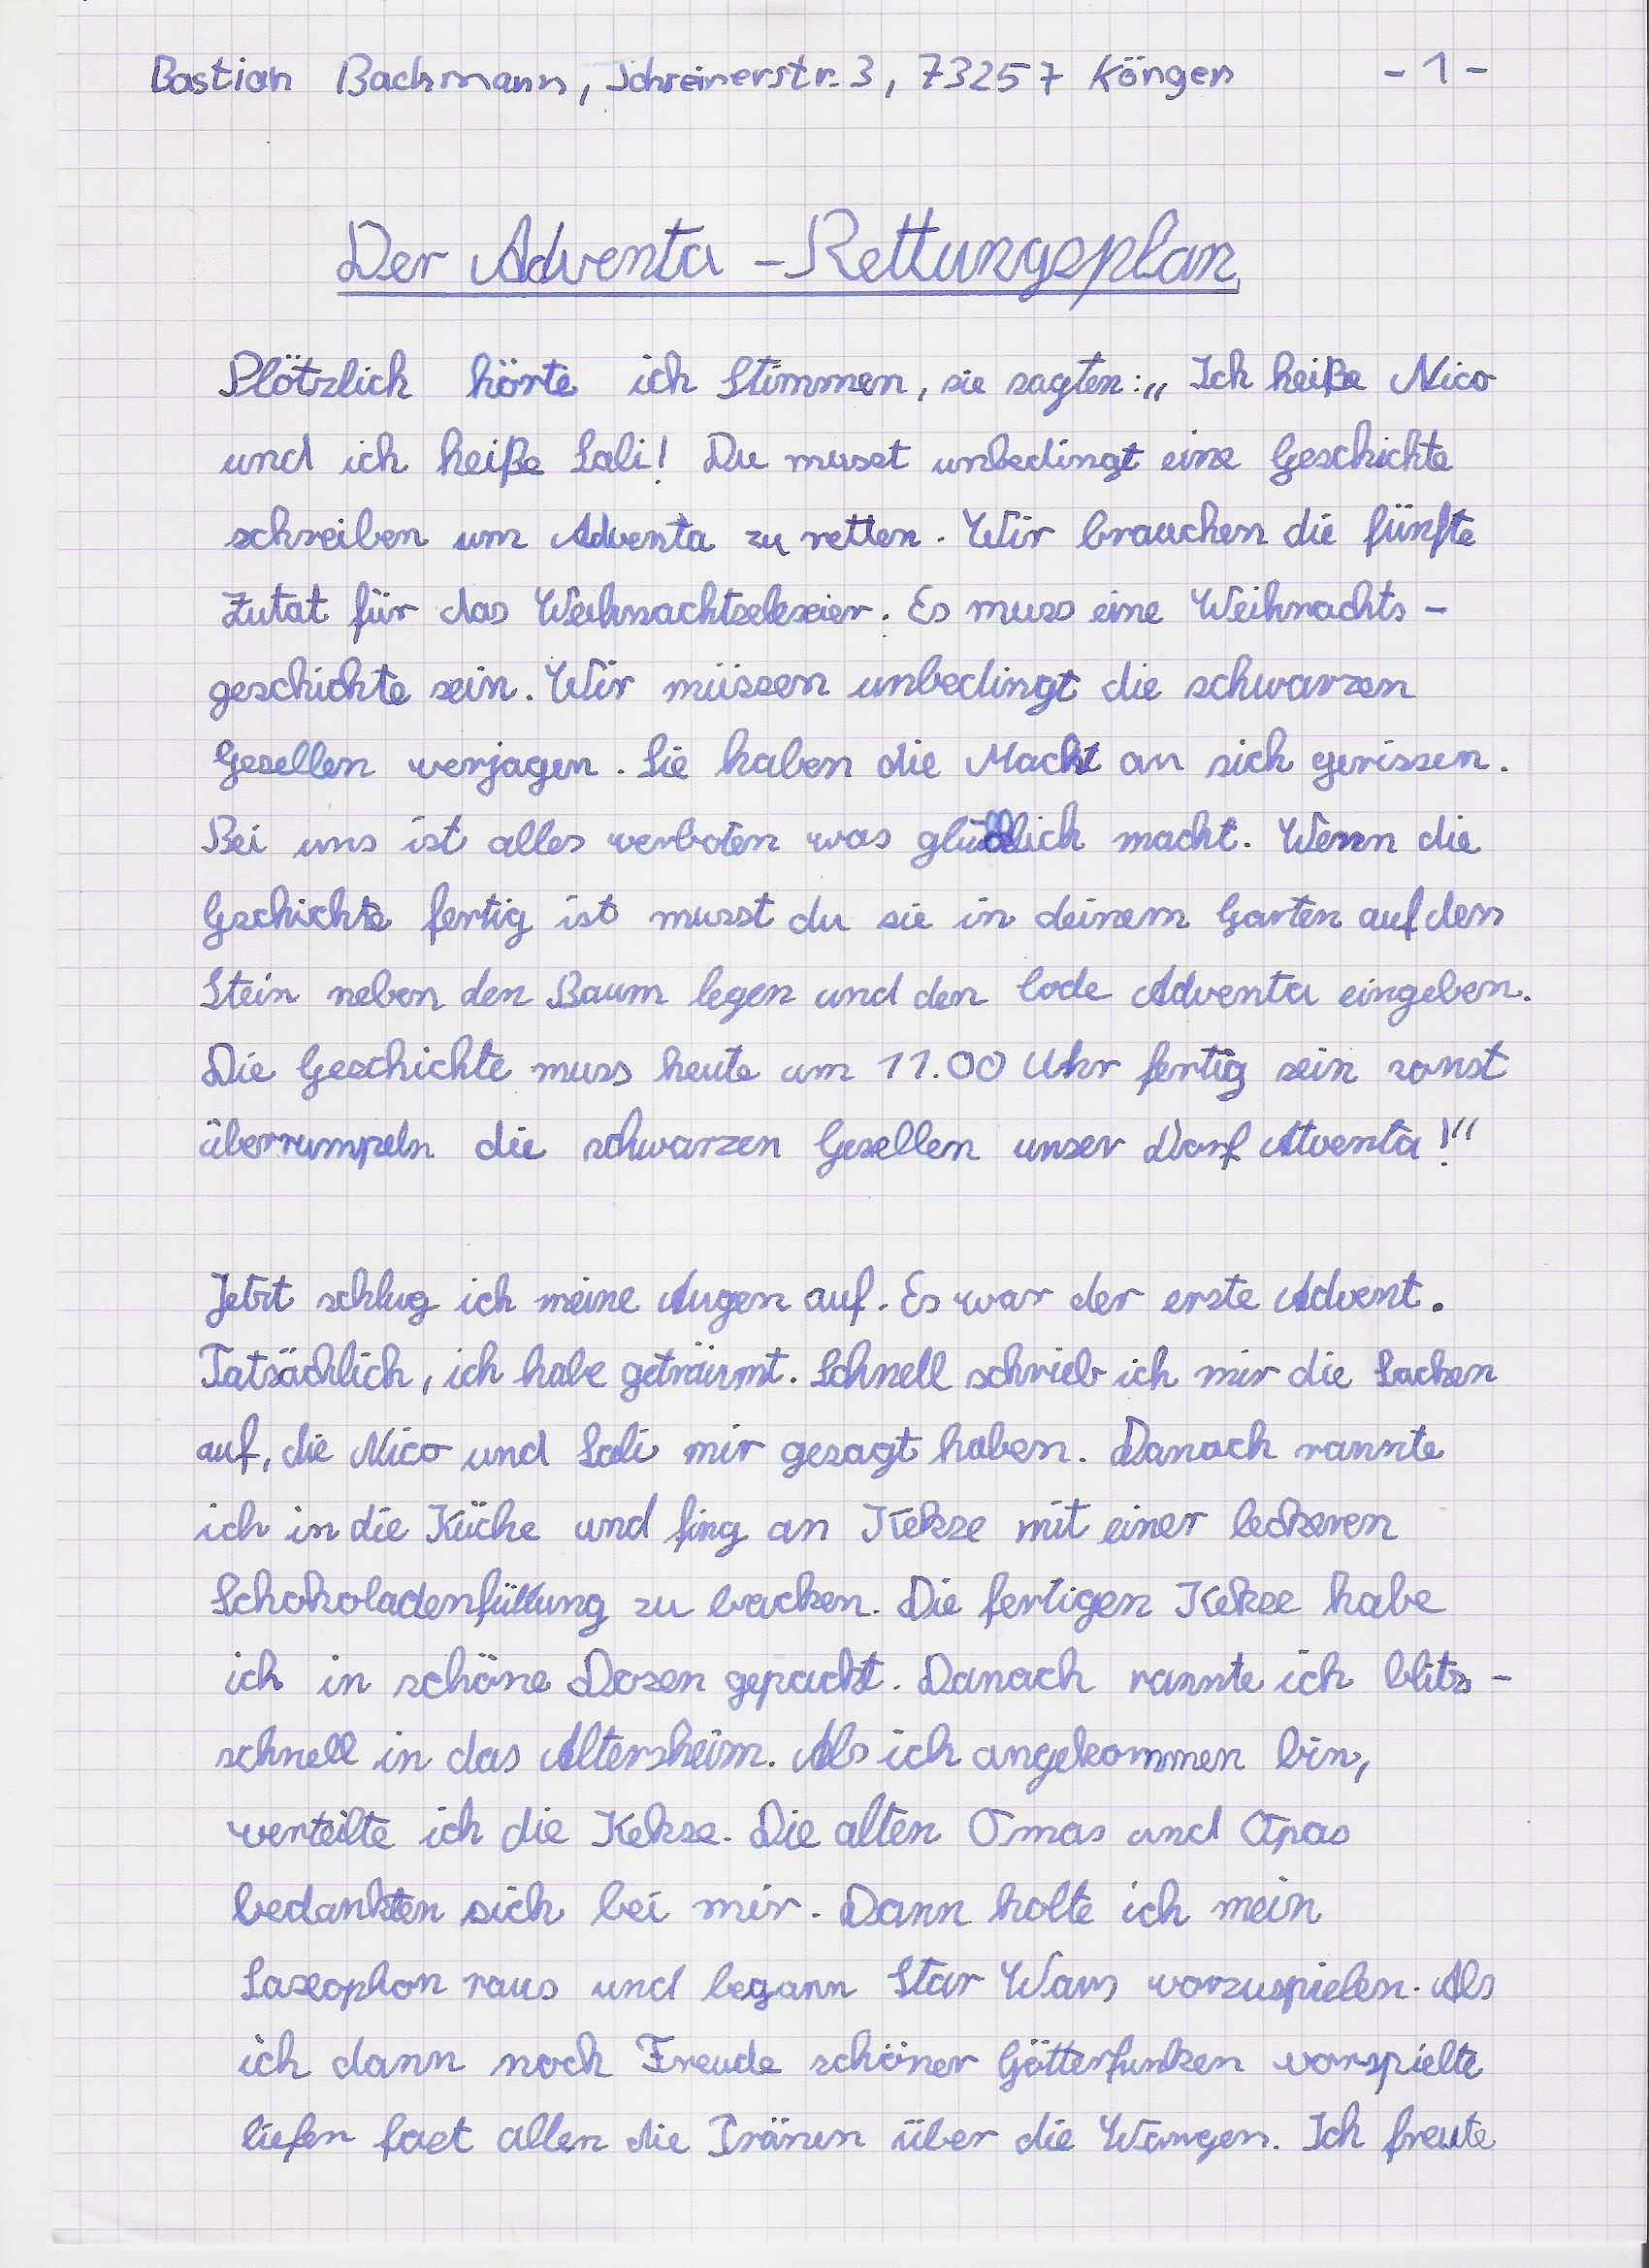 Bastian Bachmann, Schreinerstr. 3, 73257 Köngen - 1 -
Der Adventa - Rettungsplan
Plötzlich hörte ich Stimmen, sie sagten: „Ich heiße Nico
und ich heiße Sali! Du musst unbedingt eine Geschichte
schreiben um Adventa zu retten. Wir brauchen die fünfte
Zutat für das Weihnachtselexier. Es muss eine Weihnachts-
geschichte sein. Wir müssen unbedingt die schwarzen
Gesellen verjagen. Sie haben die Macht an sich gerissen.
Bei uns ist alles verboten was glücklich macht. Wenn die
Gschichte fertig ist musst du sie in deinem Garten auf den
Stein neben den Baum legen und den Code Adventa eingeben.
Die Geschichte muss heute um 11.00 Uhr fertig sein sonst
überrumpeln die schwarzen Gesellen unser Dorf Atventa!"
Jetzt schlug ich meine Augen auf. Es war der erste Advent.
Tatsächlich, ich habe geträumt. Schnell schrieb ich mir die Sachen
auf, die Nico und Sali mir gesagt haben. Danach rannte
ich in die Küche und fing an Kekse mit einer leckeren
Schokoladenfüllung zu backen. Die fertigen Kekse habe
ich in schöne Dosen gepackt. Danach rannte ich blitz-
schnell in das Altersheim. Als ich angekommen bin,
verteilte ich die Kekse. Die alten Omas und Opas
bedankten sich bei mir. Dann holte ich mein
Saxophon raus und begann Star Wars vorzuspielen. Als
ich dann noch Freude schöner Götterfunken vorspielte
liefen fast allen die Tränen über die Wangen. Ich freute